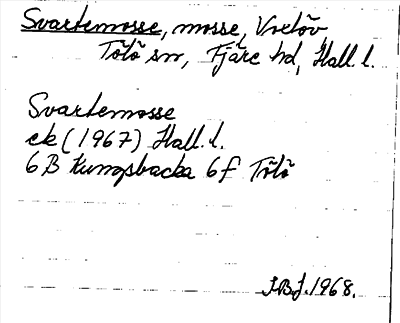 Svartemosse, mosse, Vretöv,
Tölö sn, Fjäre hd, Hall. l.
Svartemosse
ek (1967) Hall. l.
6B Kungsbacka 6f Tölö
J.B.J. 1968.